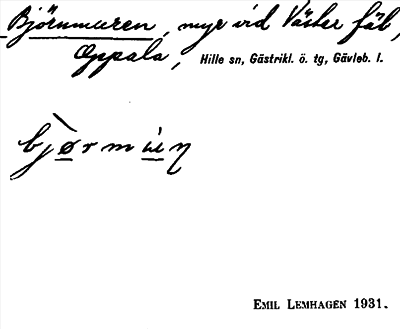 Björnmuren, myr vid Väster fäb,
Oppala, Hille sn, Gästrikl. ö. tg, Gävleb. l.
bjørmụ̀ŋ
EMIL LEMHAGEN 1931.